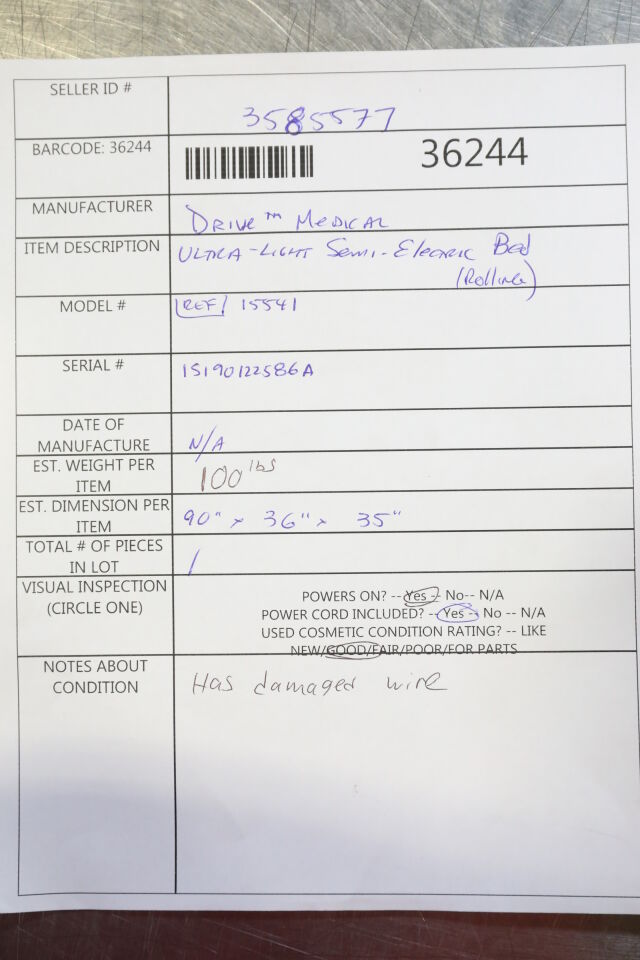 SELLER ID #
3585577
BARCODE: 36244
36244
MANUFACTURER
DRIVE™ MEDICAL
ITEM DESCRIPTION
ULTRA-LIGHT SEMI-ELECTRIC BED
(ROLLING)
MODEL #
REF 15541
SERIAL #
1S190122586A
DATE OF
MANUFACTURE
N/A
EST. WEIGHT PER
ITEM
100 lbs
EST. DIMENSION PER
ITEM
90" x 36" x 35"
TOTAL # OF PIECES
IN LOT
1
VISUAL INSPECTION
(CIRCLE ONE)
POWERS ON? -- Yes -- No-- N/A
POWER CORD INCLUDED? -- Yes -- No -- N/A
USED COSMETIC CONDITION RATING? -- LIKE
NEW/GOOD/FAIR/POOR/FOR PARTS
NOTES ABOUT
CONDITION
Has damaged wire